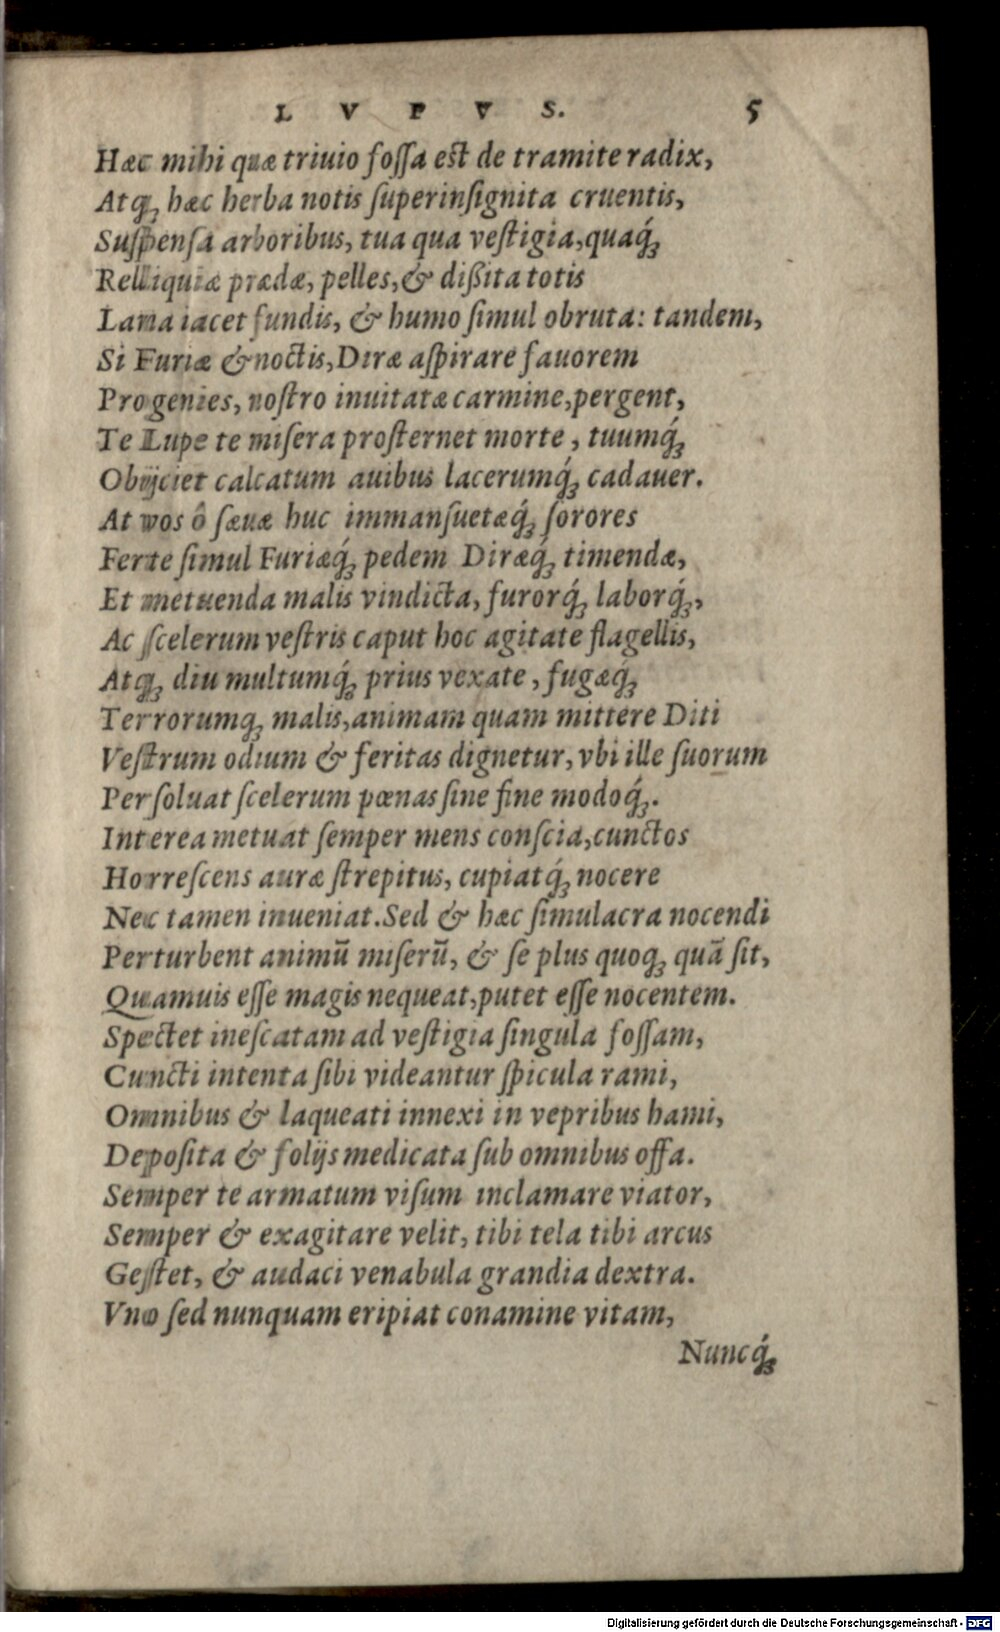 L V P V S. 5
Hæc mihi quæ triuio foſſa eſt de tramite radix,
Atq; hæc herba notis ſuperinſignita cruentis,
Suſpenſa arboribus, tua qua veſtigia, quaq́;
Relliquiæ prædæ, pelles, & dißita totis
Lana iacet fundis, & humo ſimul obruta: tandem,
Si Furiæ & noctis, Diræ aſpirare fauorem
Progenies, noſtro inuitatæ carmine, pergent,
Te Lupe te miſera proſternet morte, tuumq́;
Obijciet calcatum auibus lacerumq́; cadauer.
At vos ô ſæuæ huc immanſuetæq́; ſorores
Ferte ſimul Furiæq́; pedem Diræq́; timendæ,
Et metuenda malis vindicta, furorq́; laborq́;,
Ac ſcelerum veſtris caput hoc agitate flagellis,
Atq; diu multumq́; prius vexate, fugæq́;
Terrorumq; malis, animam quam mittere Diti
Veſtrum odium & feritas dignetur, vbi ille ſuorum
Perſoluat ſcelerum pœnas ſine fine modoq́;.
Interea metuat ſemper mens conſcia, cunctos
Horreſcens auræ ſtrepitus, cupiatq́; nocere
Nec tamen inueniat. Sed & hæc ſimulacra nocendi
Perturbent animū miſerū, & ſe plus quoq; quā ſit,
Quamuis eſſe magis nequeat, putet eſſe nocentem.
Spectet ineſcatam ad veſtigia ſingula foſſam,
Cuncti intenta ſibi videantur ſpicula rami,
Omnibus & laqueati innexi in vepribus hami,
Depoſita & folijs medicata ſub omnibus offa.
Semper te armatum viſum inclamare viator,
Semper & exagitare velit, tibi tela tibi arcus
Geſtet, & audaci venabula grandia dextra.
Vno ſed nunquam eripiat conamine vitam,
Nuncq́;
Digitalisierung gefördert durch die Deutsche Forschungsgemeinschaft - DFG